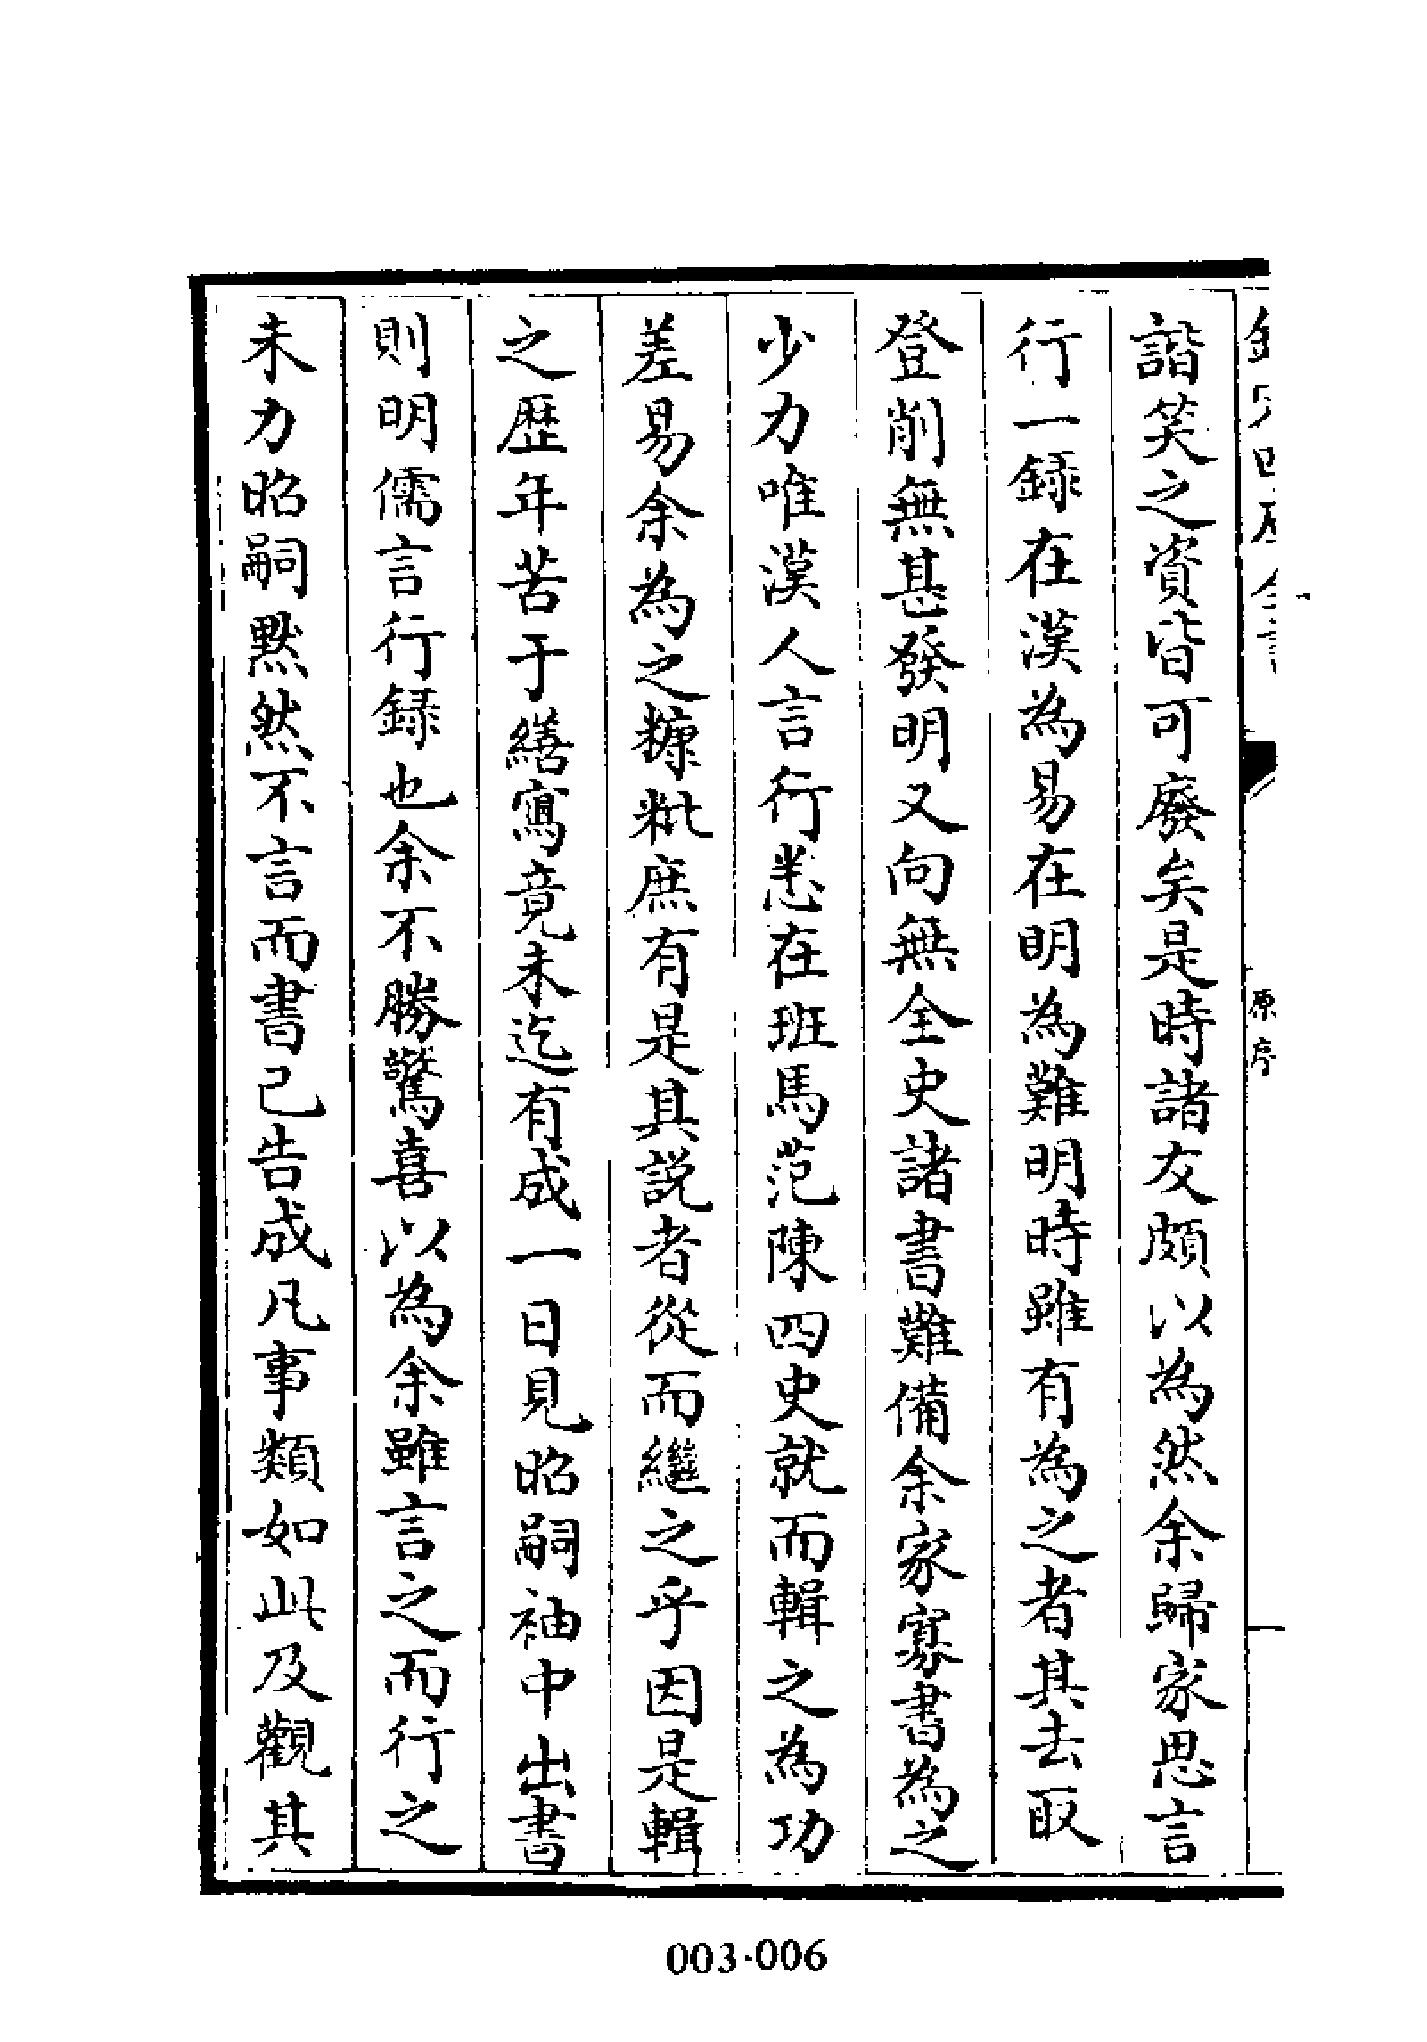 欽定四庫全書
原序
諧笑之資皆可廢矣是時諸友頗以為然余歸家思言
行一録在漢為易在明為難明時雖有為之者其去取
登削無甚發明又向無全史諸書難備余家寡書為之
少力唯漢人言行悉在班馬范陳四史就而輯之為功
差易余為之糠粃庶有是其説者從而繼之乎因是輯
之歴年苦于繕寫竟未迄有成一日見昭嗣袖中出書
則明儒言行録也余不勝驚喜以為余雖言之而行之
未力昭嗣黙然不言而書已告成凡事類如此及觀其
003-006